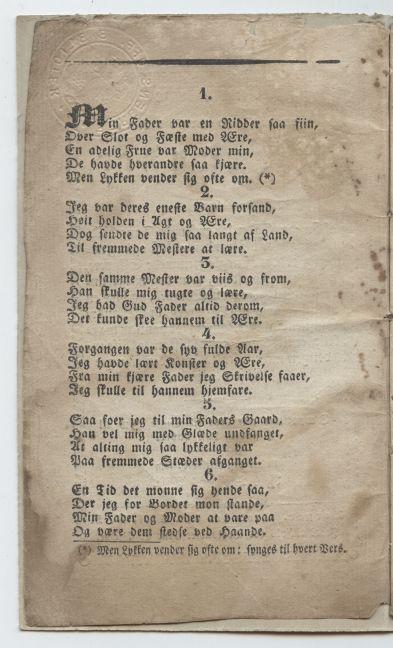 1.
Min Fader var en Ridder saa fiin,
Over Slot og Fæste med Ære,
En adelig Frue var Moder min,
De havde hverandre saa kjære.
Men Lykken vender sig ofte om. (*)
2.
Jeg var deres eneste Barn forsand,
Høit holden i Agt og Ære,
Dog sendte de mig saa langt af Land,
Til fremmede Mestere at lære.
3.
Den samme Mester var viis og from,
Han skulle mig tugte og lære,
Jeg bad Gud Fader altid derom,
Det kunde skee hannem til Ære.
4.
Forgangen var de syv fulde Aar,
Jeg havde lært Konster og Ære,
Fra min kjære Fader jeg Skrivelse faaer,
Jeg skulle til hannem hjemfare.
5.
Saa foer jeg til min Faders Gaard,
Han vel mig med Glæde undfanget,
At alting mig saa lykkeligt var
Paa fremmede Stæder afganget.
6.
En Tid det monne sig hende saa,
Der jeg for Bordet mon stande,
Min Fader og Moder at vare paa
Og være dem stedse ved Haande.
(*) Men Lykken vender sig ofte om: synges til hvert Vers.